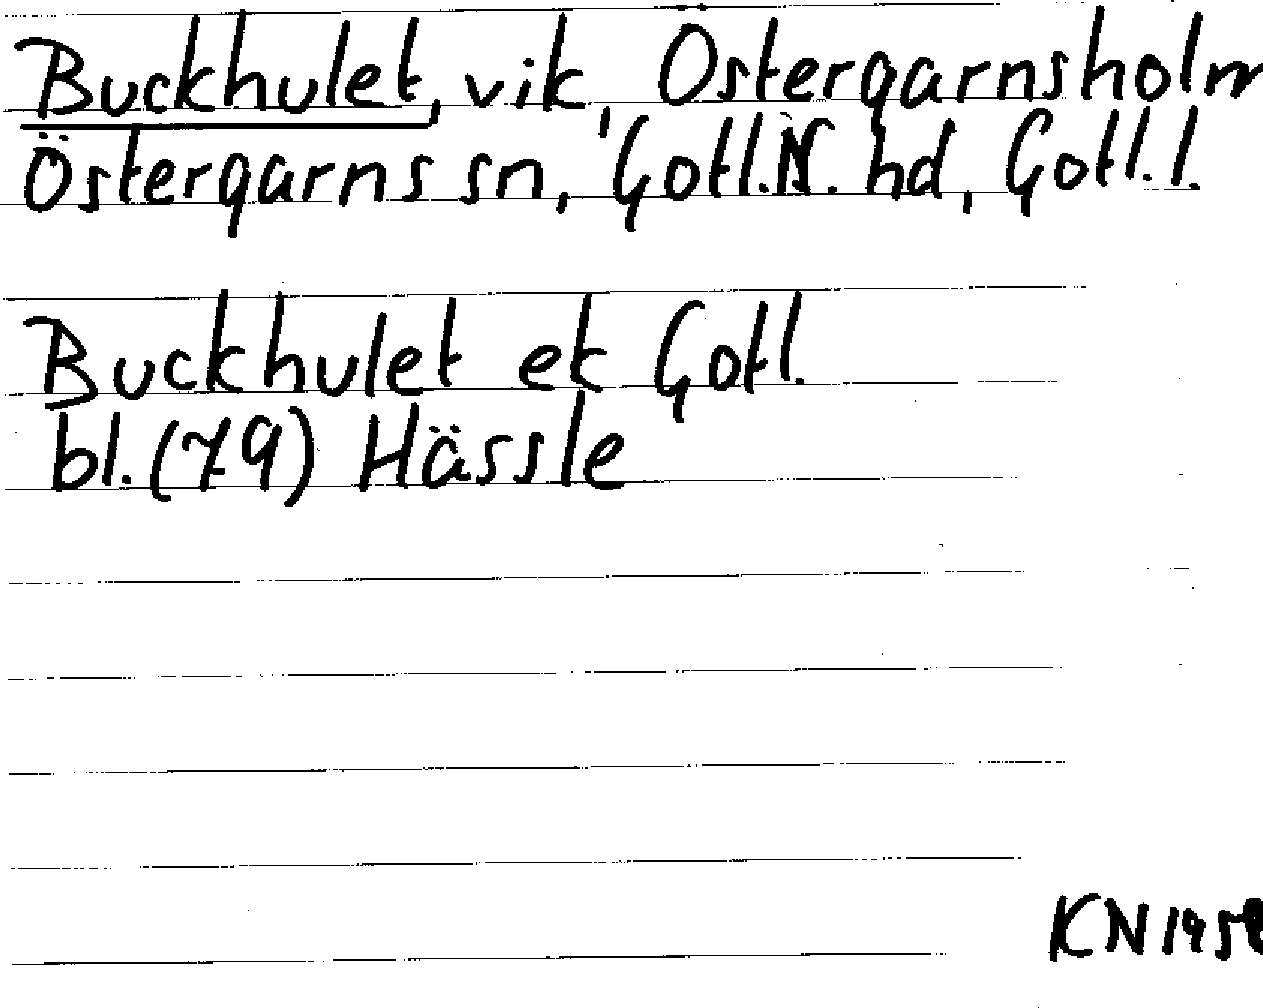 Buckhulet, vik, Ostergarnsholm
Östergarns sn, Gotl.N. hd, Gotl.l.
Buckhulet ek Gotl.
bl.(79) Hässle
KN